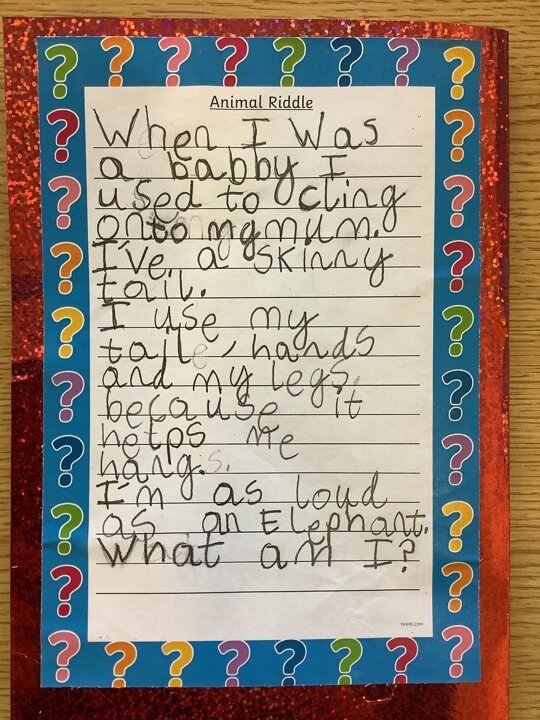 Animal Riddle
When I Was
a babby I
used to cling
onto my mum.
I've a skinny
tail.
I use my
tail, hands
and my legs.
because it
helps me
hang.
I'm as loud
as an Elephant.
What am I?
twinkl.com